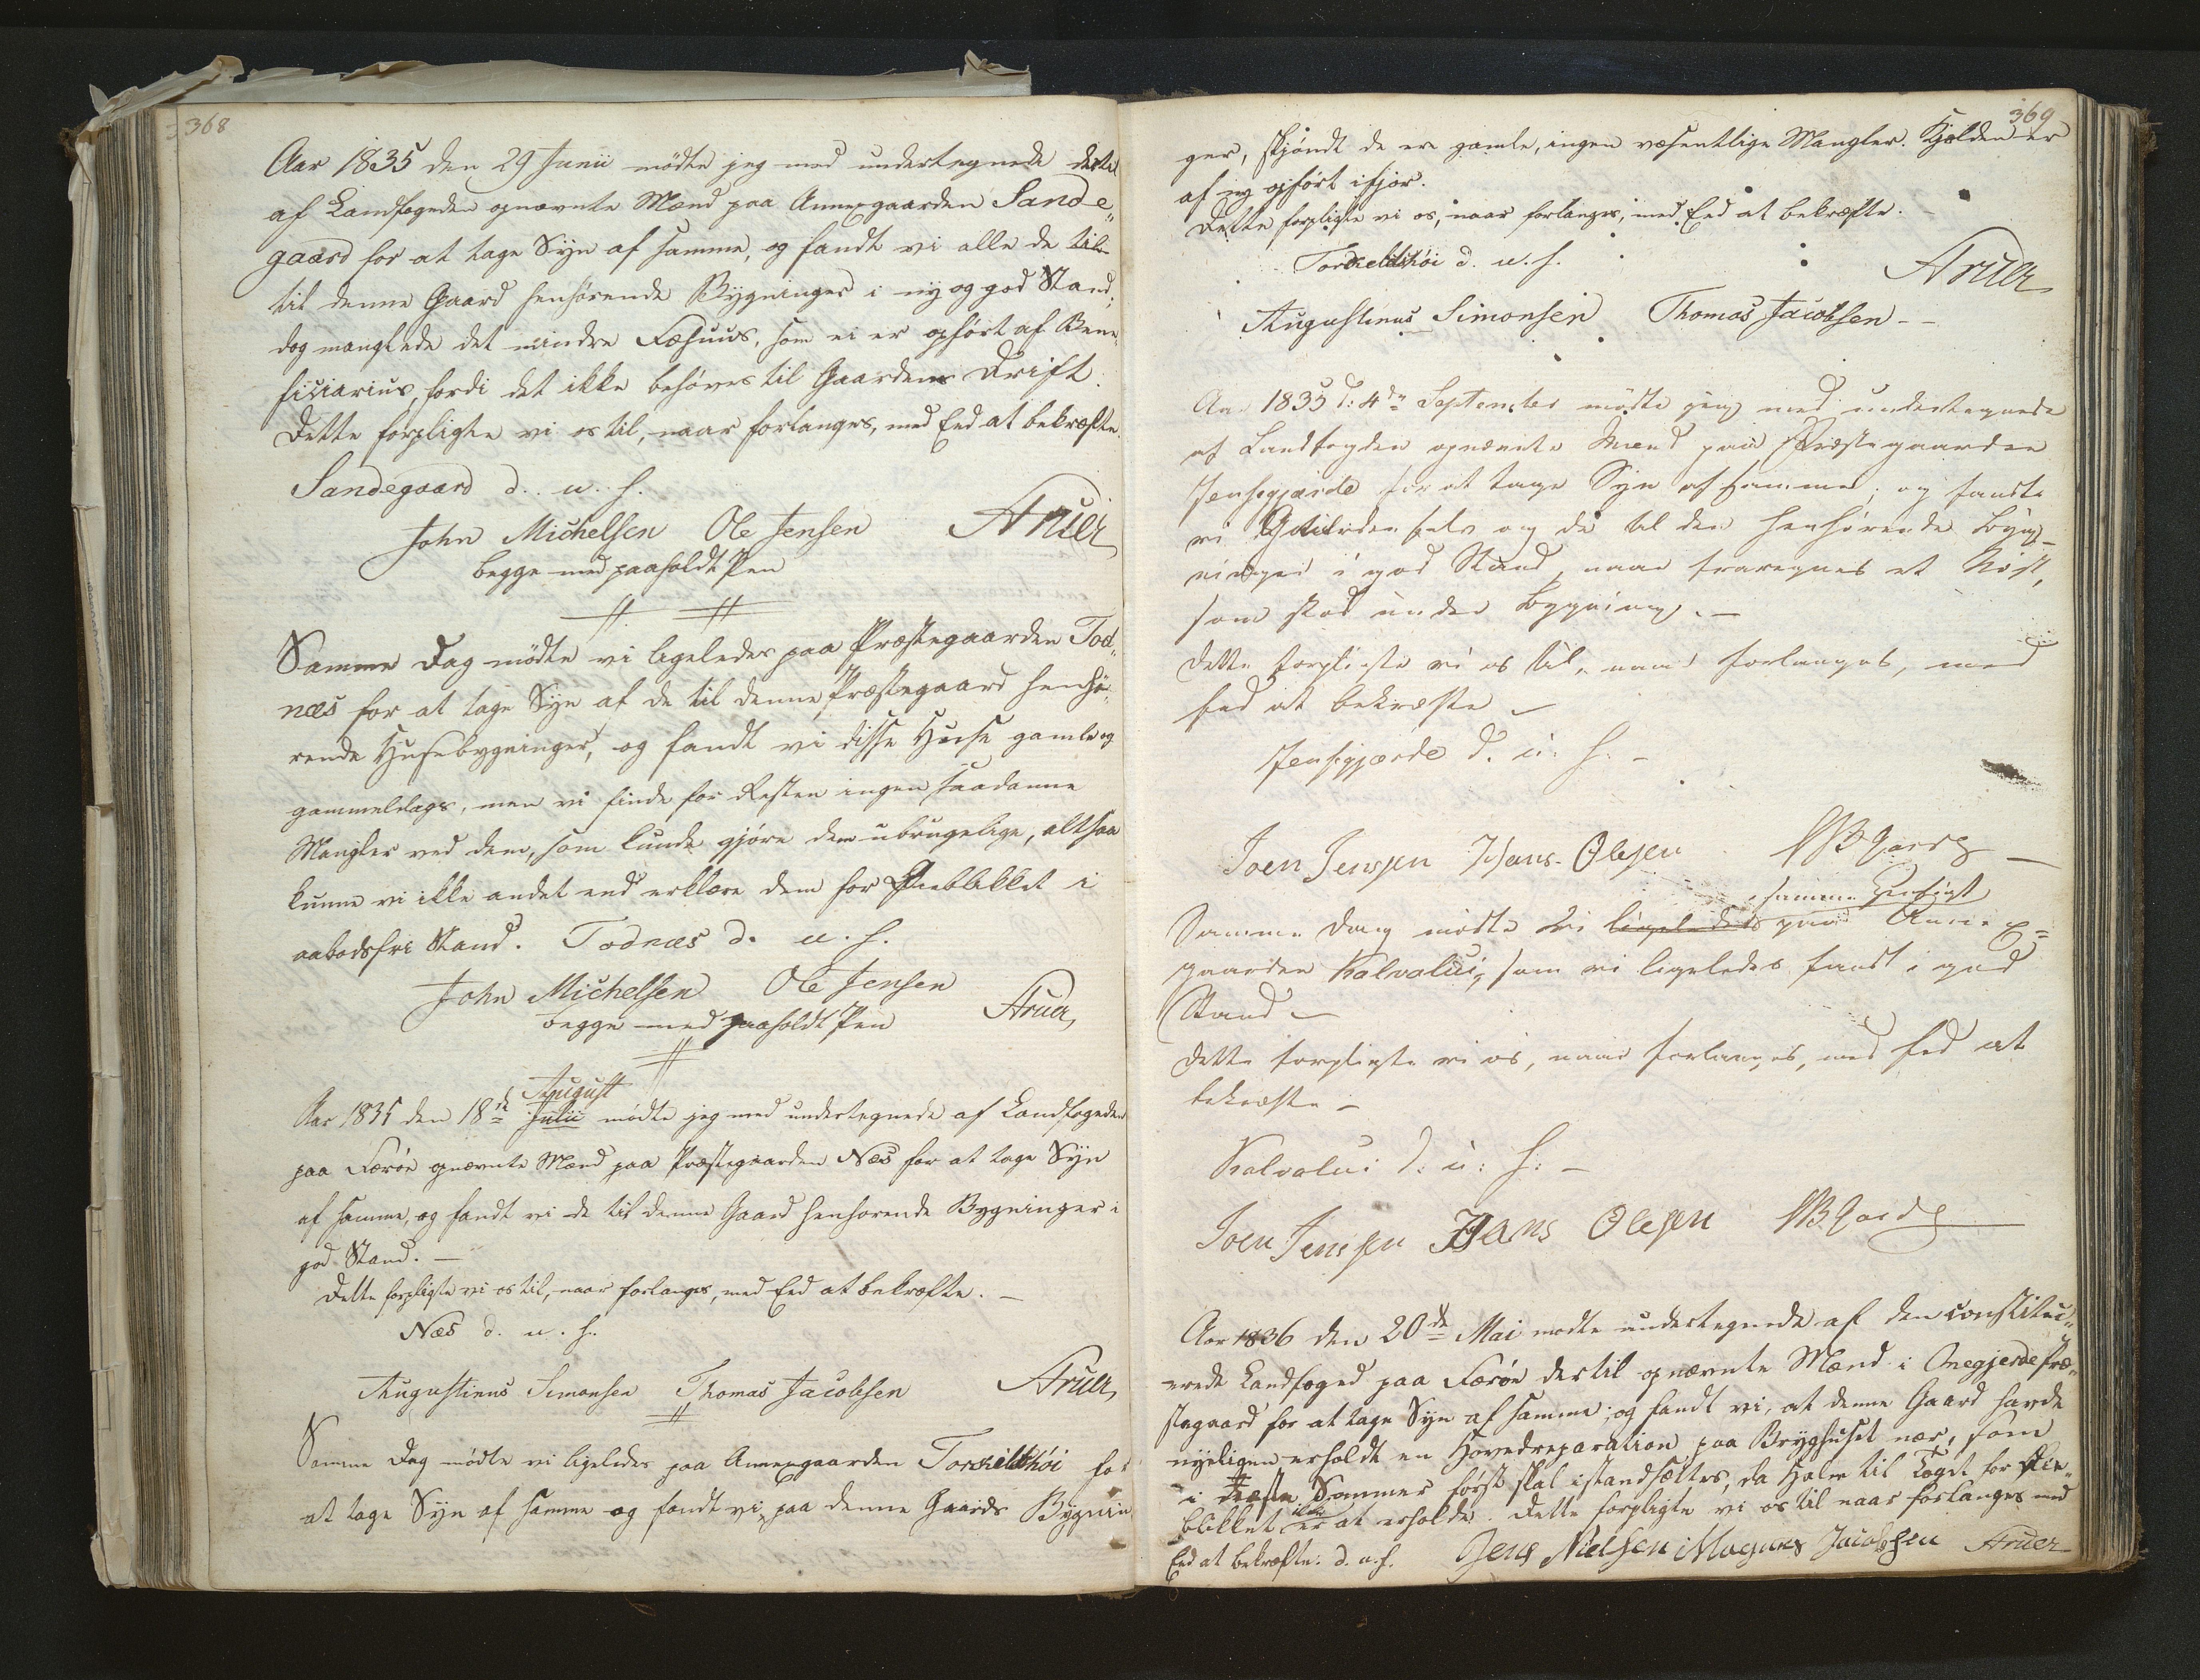 368
Aar 1835 den 29 Junii mødte jeg med undertegnede dertil
af Landfogeden opnævnte Mænd paa Annexgaarden Sande„
gaard for at tage Syn af samme, og fandt vi alle de til
til denne Gaard henhørende Bygninger i ny og god Stand;
dog manglede det mindre Fæhuus, som ei er opført af Bene„
ficiarius, fordi det ikke behøves til Gaardens Drift.
Dette forpligte vi os til, naar forlanges, med Eed at bekræfte.
Sandegaard d. u. s.
John Michelsen Ole Jensen Aruer
begge med paaholdt Pen
Samme Dag mødte vi ligeledes paa Præstegaarden Tod„
næs for at tage Syn af de til denne Præstegaard henhø„
rende Husebygninger, og fandt vi disse Huse gamle og
gammeldags, men vi finde for Resten ingen saadanne
Mangler ved dem, som kunde gjøre dem ubrugelige, altsaa
kunne vi ikke andet end erklære dem for Øieblikket i
aabodsfri Stand. Todnæs d. u. s.
John Michelsen Ole Jensen
begge med paaholdt Pen Aruer
August
Aar 1835 den 18de Julii mødte jeg med undertegnede af Landfogeden
paa Færøe opnævnte Mænd paa Præstegaarden Næs for at tage Syn
af samme, og fandt vi de til denne Gaard henhørende Bygninger i
god Stand. —
Dette forpligte vi os til, naar forlanges, med Eed at bekræfte. —
Næs d. u. s.
Augustinus Simonsen Thomas Jacobsen Aruer
Samme Dag mødte vi ligeledes paa Annexgaarden Torkildshøi for
at tage Syn af samme og fandt vi paa denne Gaards Bygnin
369
ger, skjøndt de ere gamle, ingen væsentlige Mangler. Kjælden er
af ny opført ifjor.
Dette forpligte vi os, naar forlanges, med Eed at bekræfte.
Torkeldshøi d. u. s.
Aruer
Augustinus Simonsen Thomas Jacobsen --
Aar 1835 d: 4de September mødte jeg med undertegnede
af Landfogden opnævnte Mænd paa Præstegaarden
Jensegjærde for at tage Syn af samme; og fandt
vi Gaarden selv og de til den henhørende Byg-
ninger i god Stand, naar fraregnes et Nøst,
som stod under Bygning. —
Dette forpligte vi os til, naar forlanges, med
Eed at bekræfte —
Jensegjærde d. u. s. —
Joen Jensen Hans Olesen
samme Hensigt
Samme Dag mødte vi ligeledes paa Annex=
gaarden Kalvalui, som vi ligeledes fandt i god
Stand —
Dette forpligte vi os, naar forlanges, med Eed at
bekræfte —
Kalvalui d: u: s: —
Joen Jensen Hans Olesen
Aar 1836 den 20de Mai mødte undertegnede af den constitu„
erede Landfoged paa Færøe dertil opnævnte Mænd i Onegjerde Præ„
stegaard for at tage Syn af samme; og fandt vi, at denne Gaard havde
nyeligen erholdt en Hovedreparation paa Bryghuset nær, som
i næste Sommer først skal istandsættes, da Halm til Taget for Øie„
ikke
blikket er at erholde. Dette forpligte vi os til naar forlanges med
Eed at bekræfte. d. u. s. Jens Nielsen Magnus Jacobsen Aruer